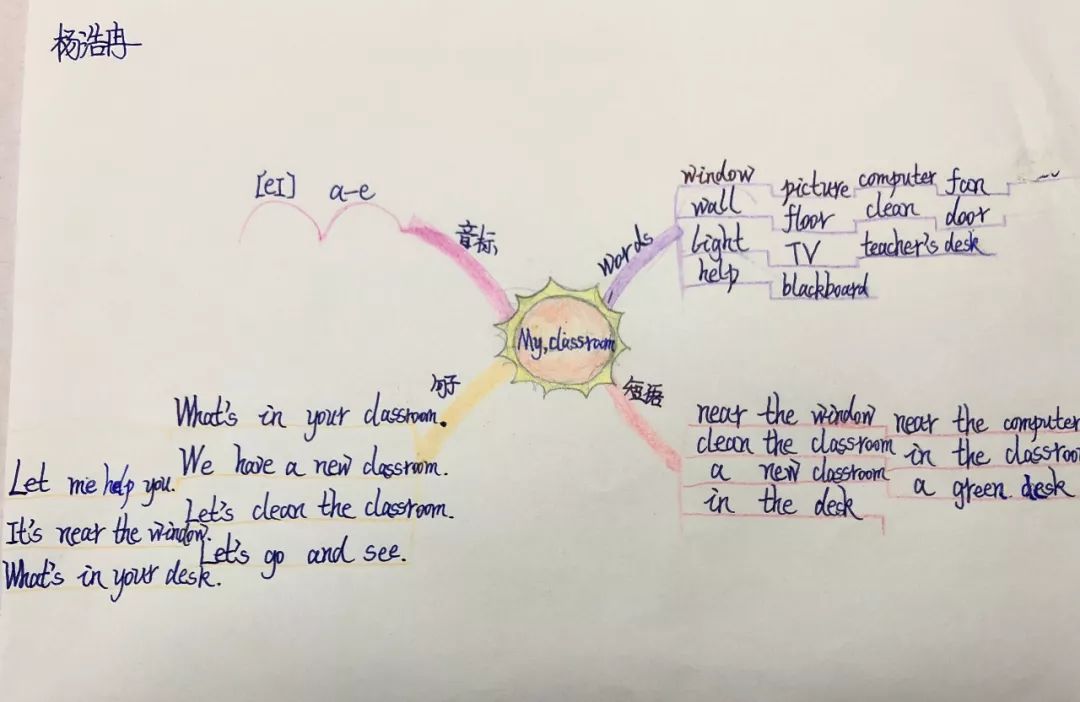 杨浩冉
[eI] a-e
音标
words
window picture computer fan ...
wall floor clean door
light TV teacher's desk
help blackboard
My classroom
句子
What's in your classroom.
We have a new classroom.
Let's clean the classroom.
Let's go and see.
Let me help you.
It's near the window.
What's in your desk.
短语
near the window near the computer
clean the classroom in the classroo
a new classroom a green desk
in the desk